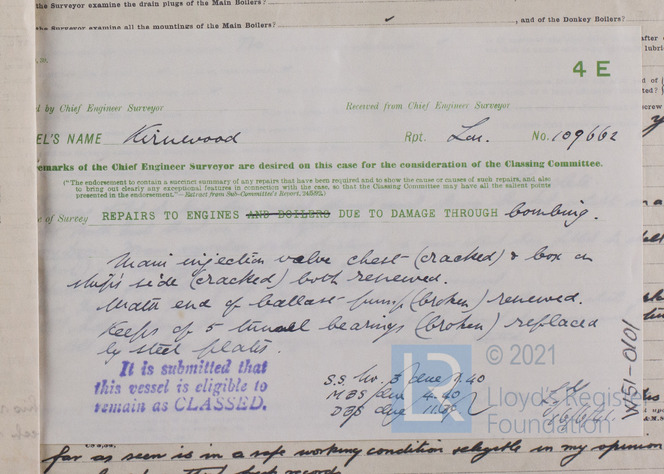 the Surveyor examine the drain plugs of the Main Boilers?
the Surveyor examine all the mountings of the Main Boilers? , and of the Donkey Boilers?
4 E
d by Chief Engineer Surveyor Received from Chief Engineer Surveyor
EL'S NAME Kirnwood Rpt. Lon. No. 109662
emarks of the Chief Engineer Surveyor are desired on this case for the consideration of the Classing Committee.
("The endorsement to contain a succinct summary of any repairs that have been required and to show the cause or causes of such repairs, and also
to bring out clearly any exceptional features in connection with the case, so that the Classing Committee may have all the salient points
presented in the endorsement."—Extract from Sub-Committee's Report,
e of Survey REPAIRS TO ENGINES AND BOILERS DUE TO DAMAGE THROUGH bombing.
Main injection valve chest (cracked) & box on
ship's side (cracked) both renewed.
Water end of ballast pump (broken) renewed.
Keeps of 5 tunnel bearings (broken) replaced
by steel plates.
It is submitted that
this vessel is eligible to
remain as CLASSED.
S.S. No. 3 due 9.40
MBS due 4.40
DBS due
© 2021
Lloyd's Register
Foundation
W151-0101
far as seen is in a safe working condition eligible in my opinion